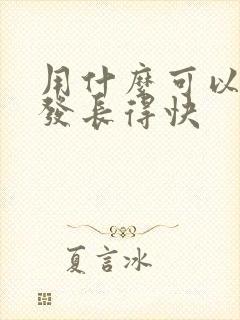 用什麼可以
發長得快
夏言冰